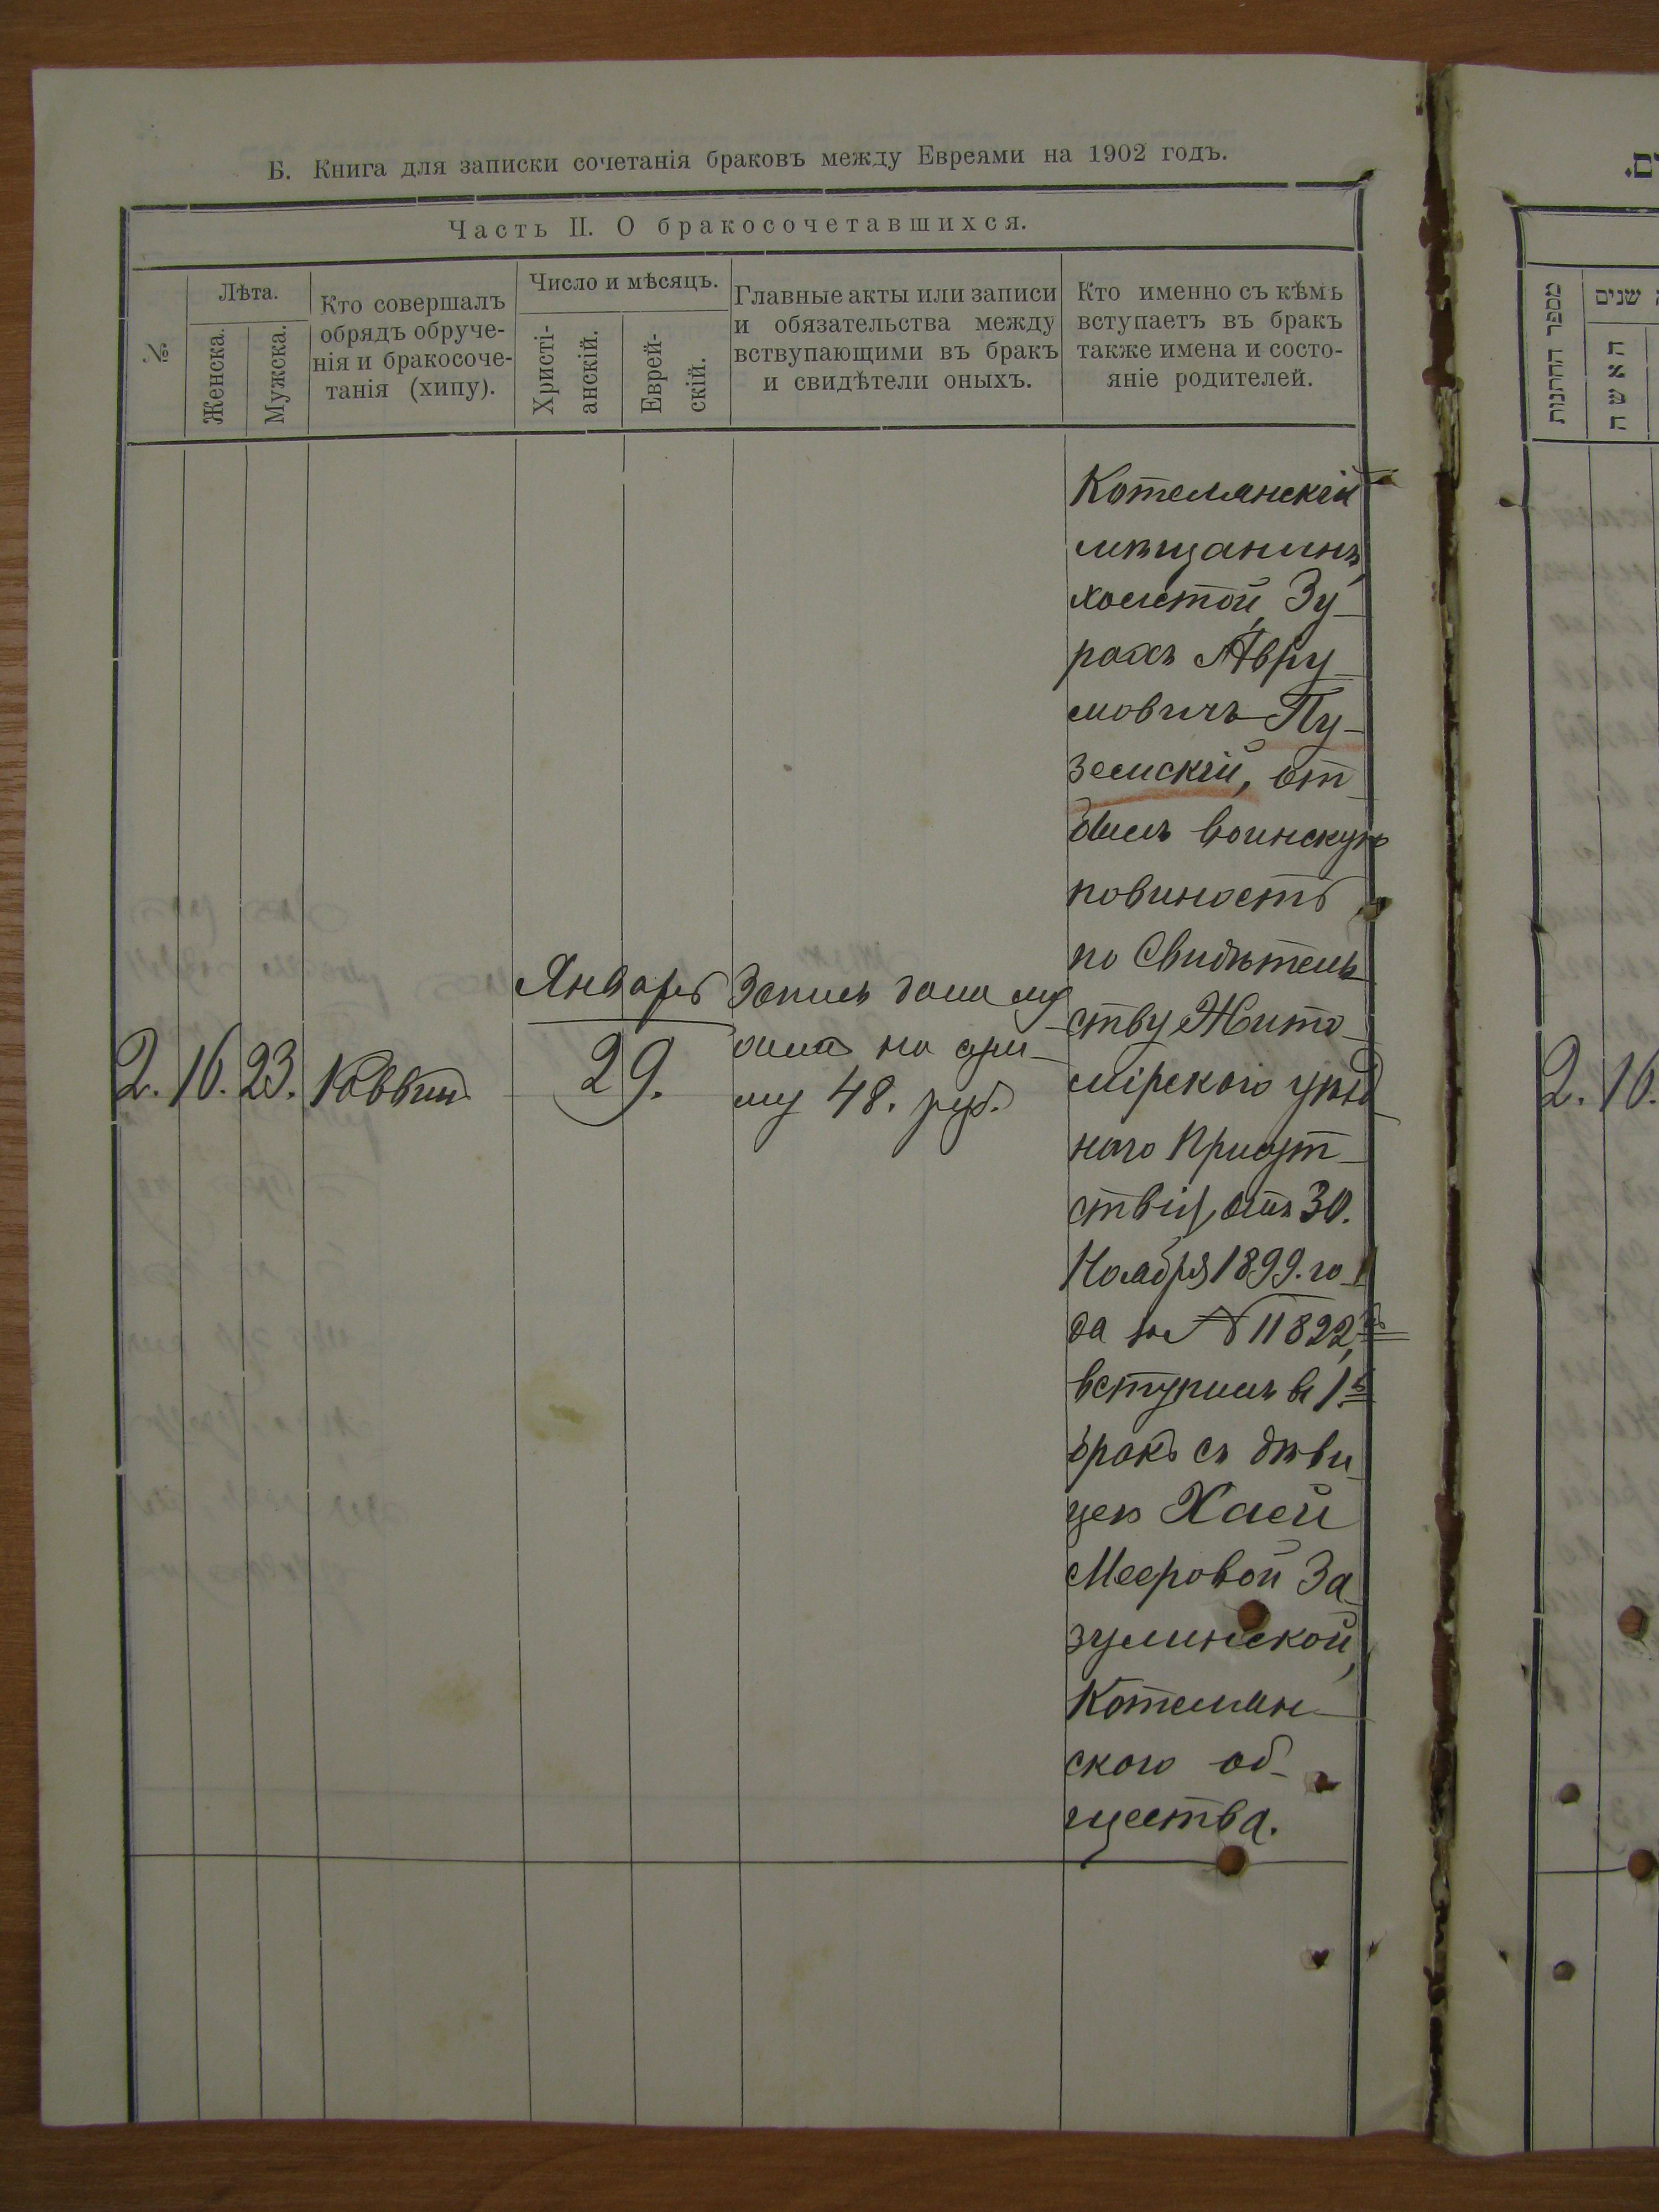 Б. Книга для записки сочетанія браковъ между Евреями на 1902 годъ.
Часть II. О бракосочетавшихся.
№
Лѣта.
Женска.
Мужска.
Кто совершалъ
обрядъ обруче-
нія и бракосоче-
танія (хипу).
Число и мѣсяцъ.
Христі-
анскій.
Еврей-
скій.
Главные акты или записи
и обязательства между
вствупающими въ бракъ
и свидѣтели оныхъ.
Кто именно съ кѣмъ
вступаетъ въ бракъ
также имена и состо-
яніе родителей.
2. 16. 23. Раввин
Январь
29.
Запись дана му
жем на сум-
му 48. руб.
Котелянскій
мѣщанинъ,
холостой, Зу-
рахъ Авру-
мовичъ Пу-
земскій, от-
былъ воинскую
повиность
по Свидѣтель-
ству Жито-
мірского уѣзд-
ного Присут-
ствія, отъ 30.
Ноября 1899. го-
да за № 11822,
вступилъ въ 1й
бракъ съ дѣви-
цею Хаей
Мееровой За-
зулинской,
Котелян-
ского об-
щества.
ים.
מספר החתונות
שנים
האשה
2. 16.